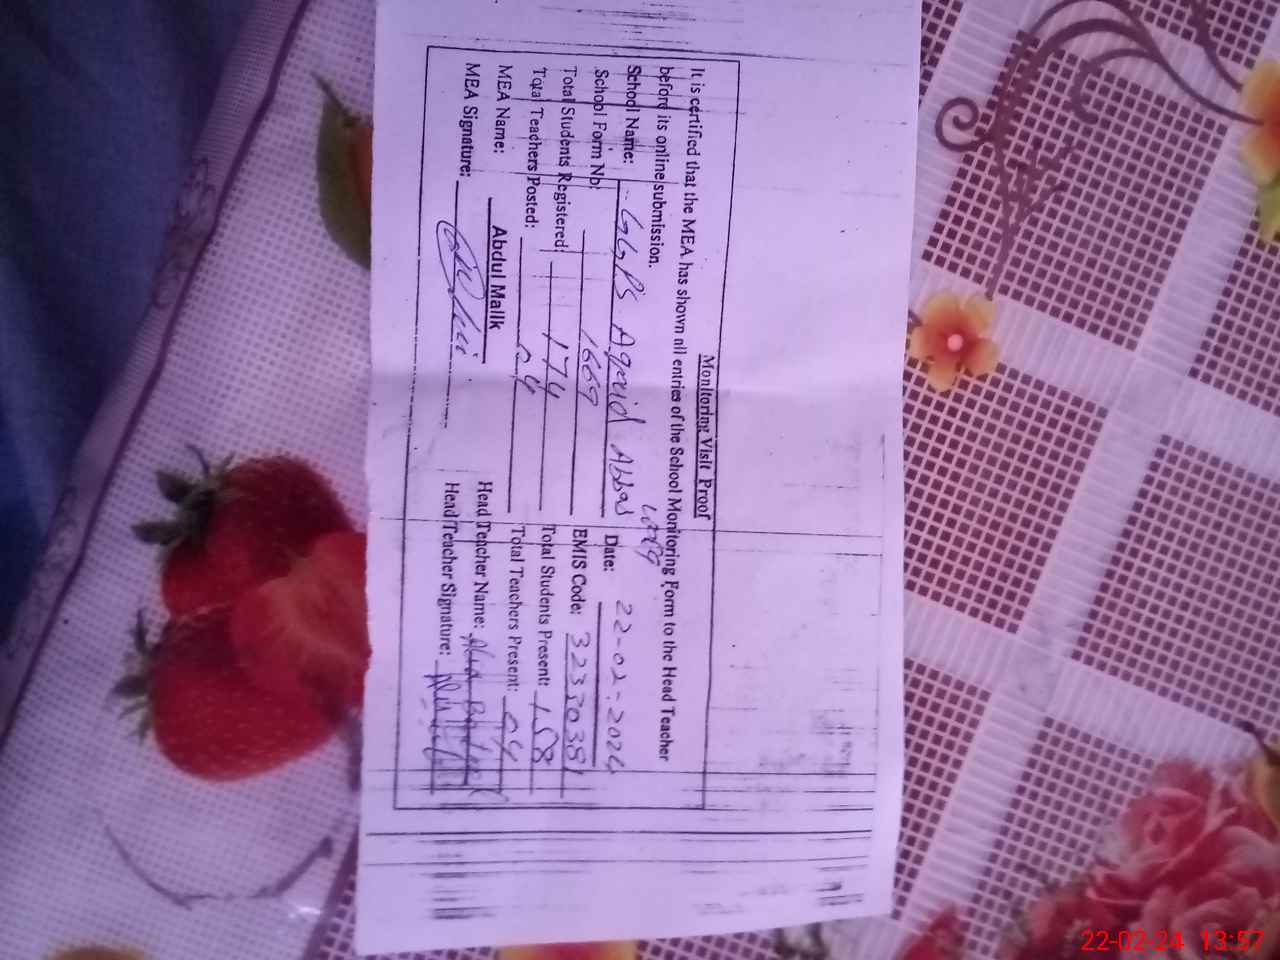 Monitoring Visit Proof
It is certified that the MEA has shown all entries of the School Monitoring Form to the Head Teacher
before its online submission.
School Name: GGPS Aquid Abbas Date: 22-02-2024
School Form No: 1669 EMIS Code: 32330381
Total Students Registered: 174 Total Students Present: 158
Total Teachers Posted: 04 Total Teachers Present: 04
MEA Name: Abdul Malik Head Teacher Name:
MEA Signature: Head Teacher Signature:
22-02-24 13:57